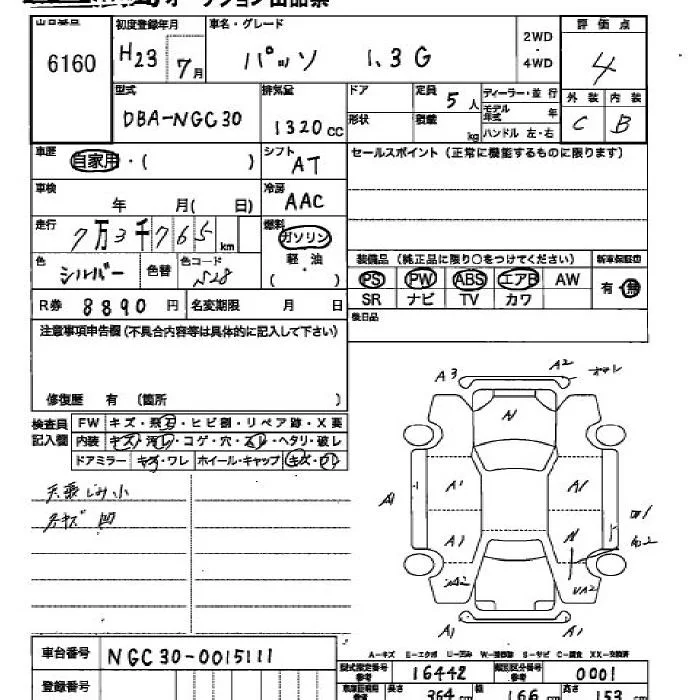 オークション出品票
出品番号
6160
初度登録年月
H23 7月
車名・グレード
パッソ 1.3G
2WD
・
4WD
評価点
4
型式
DBA-NGC30
排気量
1320cc
ドア
形状
定員 5人
積載 kg
ディーラー・並行
モデル年式 年
ハンドル 左・右
外装 内装
C B
車歴
自家用・( )
シフト
AT
セールスポイント(正常に機能するものに限ります)
車検
年 月( 日)
冷房
AAC
走行
7万3千765km
燃料
ガソリン
軽油
( )
色
シルバー
色替
色コード
S28
装備品(純正品に限り○をつけてください)
新車保証書
PS PW ABS エアB AW
SR ナビ TV カワ
有・無
R券 8890円
名変期限 月 日
後日品
注意事項申告欄(不具合内容等は具体的に記入して下さい)
修復歴 有(箇所 )
検査員
記入欄
FW キズ・飛石・ヒビ割・リペア跡・X要
内装 キズ・汚レ・コゲ・穴・スレ・ヘタリ・破レ
ドアミラー キズ・ワレ ホイール・キャップ キズ・ワレ
天張しみ小
A3 A2
N
A1 A1 A1
A1 N
A2 UA2
A-キズ E-エクボ U-凹み W-補修跡 S-サビ C-腐食 XX-交換済
車台番号
NGC30-0015111
登録番号
型式指定番号
参考
16442
類別区分番号
参考
0001
長さ 364cm 幅 166cm 高さ 153cm